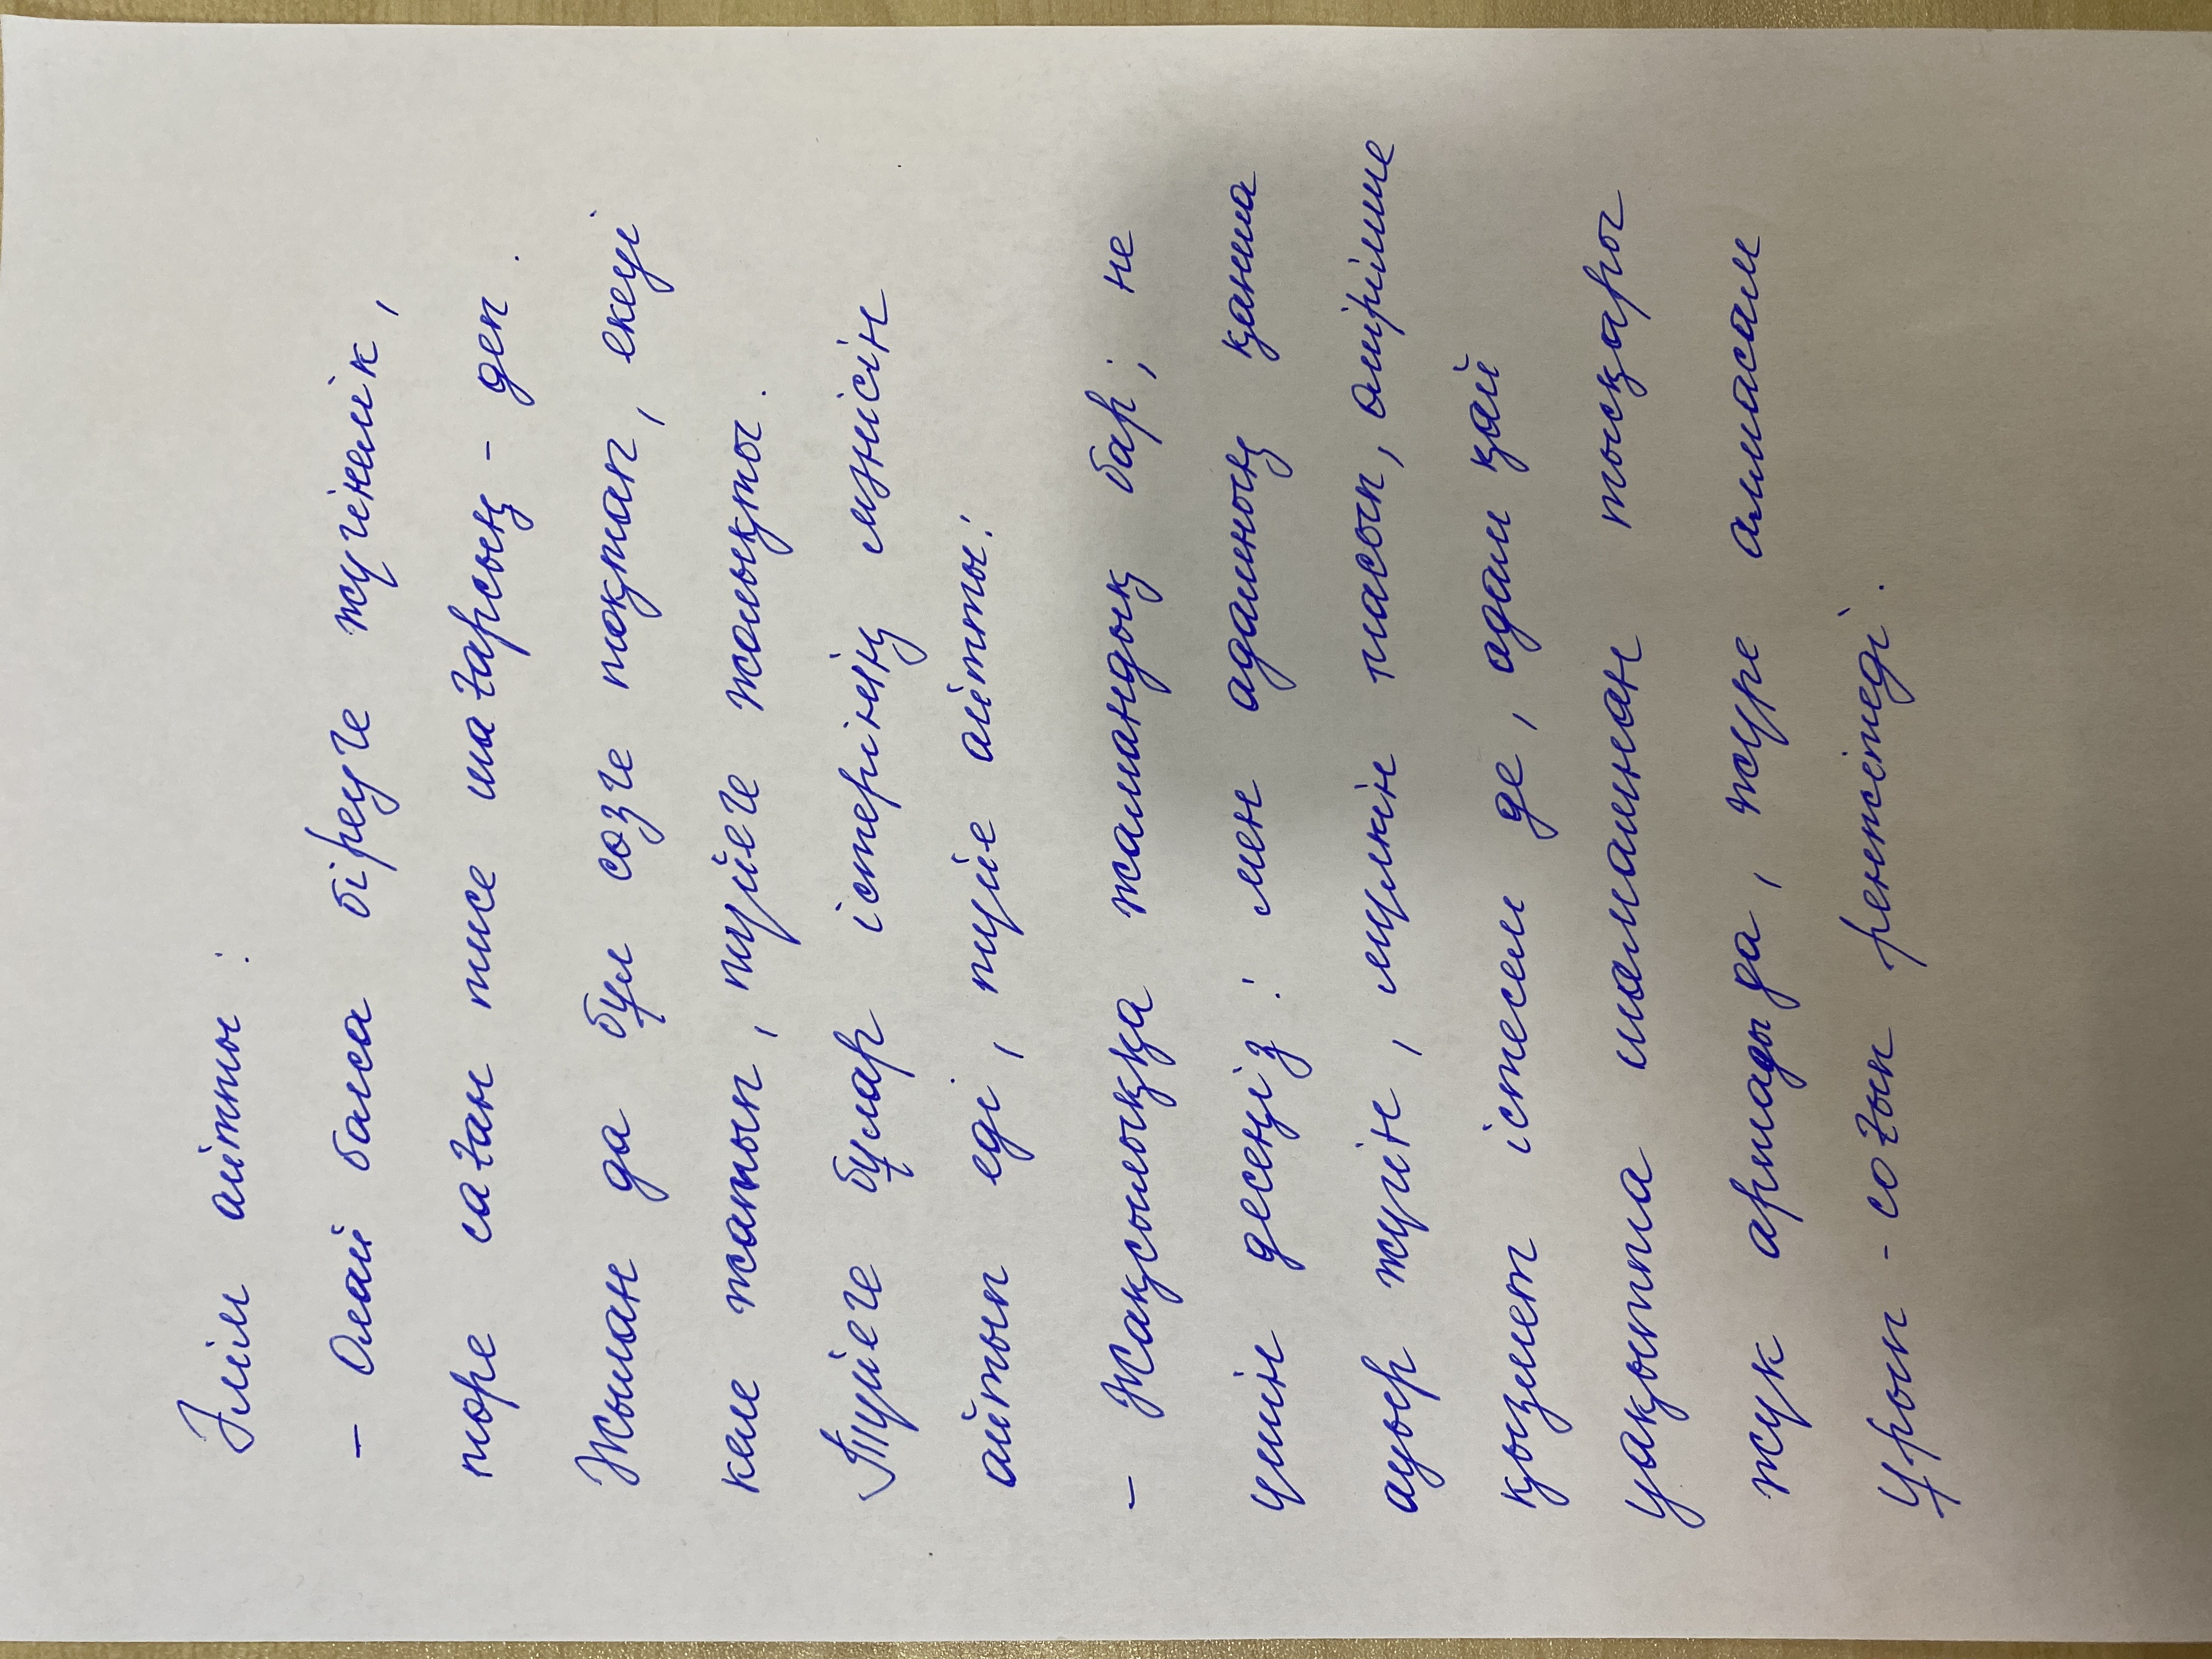 Әлім айтты:
– Олай болса біреуге жүгінелік,
төре саған тисе шағарсың - деп.
Жылан да бұл сөзге тоқтап, екеуі
келе жатып, түйеге жолықты.
Түйеге бұлар істерінің мәнісін
айтып еді, түйе айтты:
– Жақсылыққа жамандық бар; не
үшін десеңіз: мен адамның қанша
ауыр жүгін, мүлкін тасып, өмірімше
қызмет істесем де, адам қай
уақытта шамамнан тысқары
жүк артады да, жүре алмасам
ұрып-соғып ренжітеді.